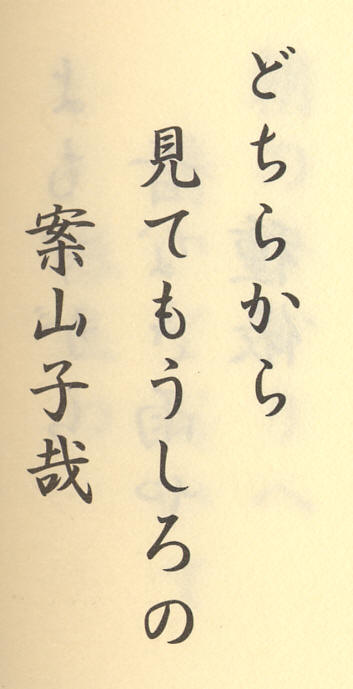 どちらから
見てもうしろの
案山子哉